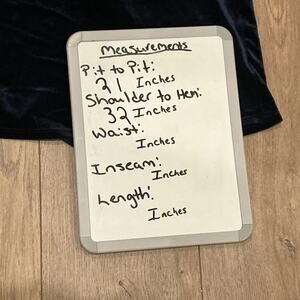 Measurements
Pit to Pit:
21 Inches
Shoulder to Hem:
32 Inches
Waist:
Inches
Inseam:
Inches
Length:
Inches